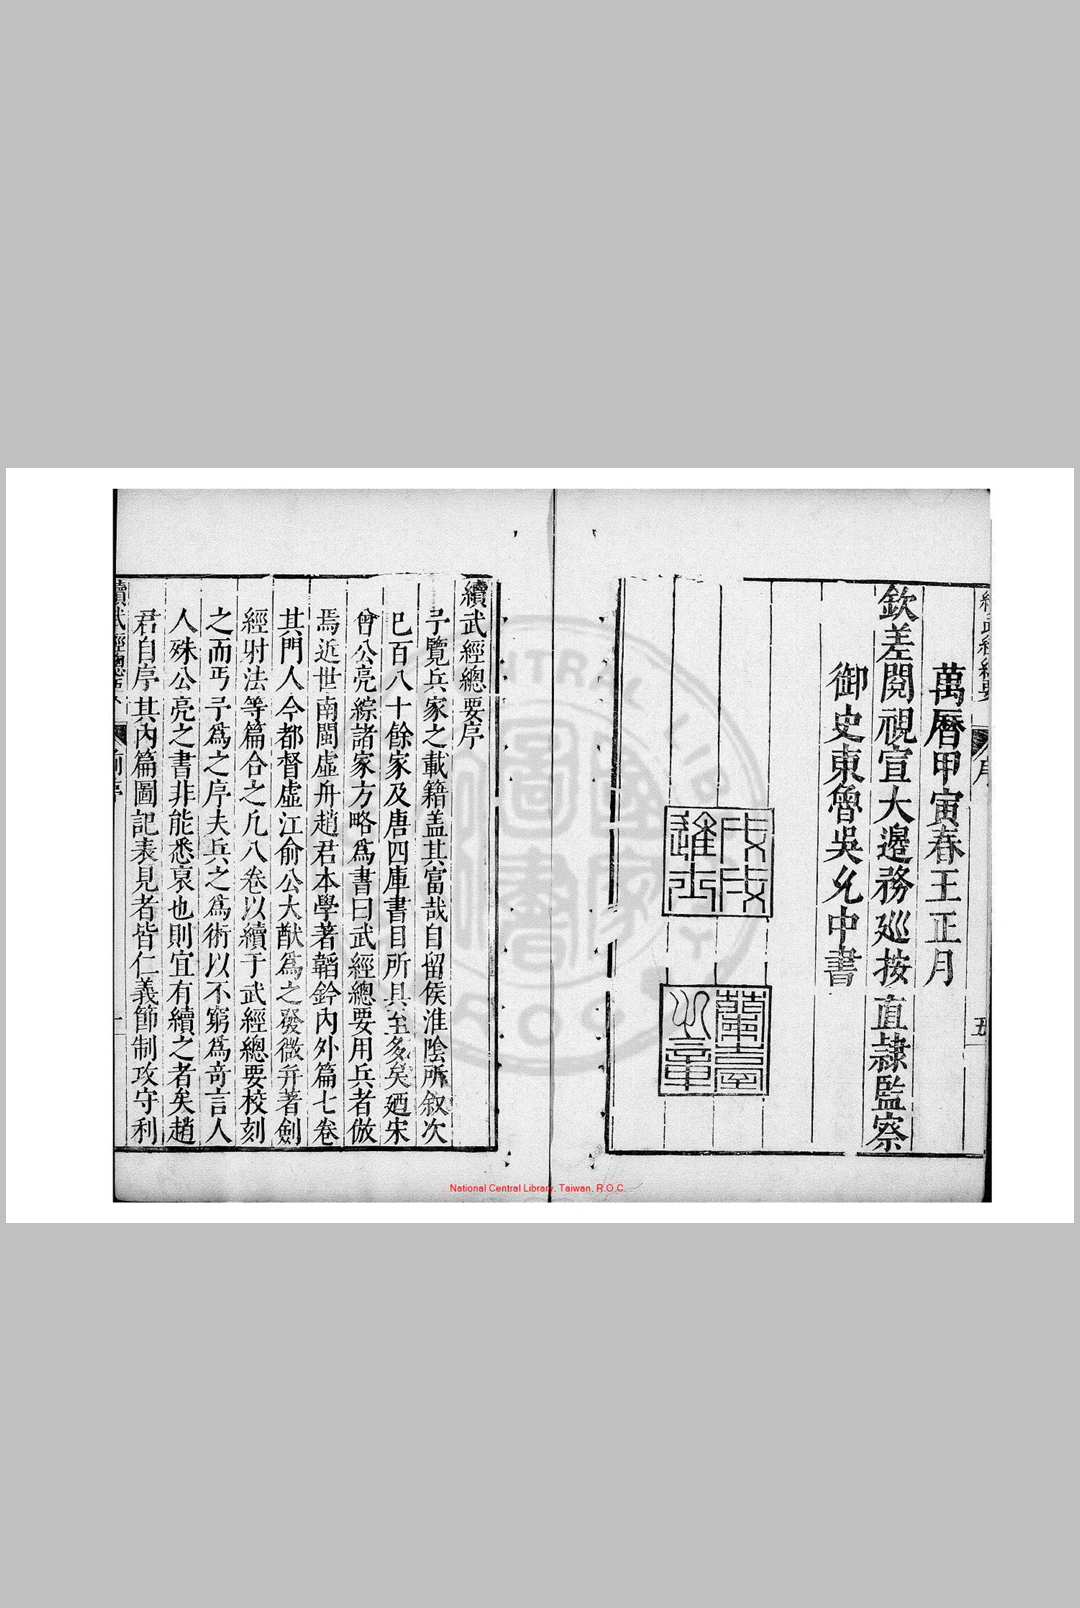 萬曆甲寅春王正月
欽差閱視宣大邊務廵按直隸監察
御史東魯吳允中書
戊戌進士
蘭臺之章
續武經總要序
予覽兵家之載籍盖其富哉自留侯淮陰所叙次
巳百八十餘家及唐四庫書目所具至多矣廼宋
曾公亮綜諸家方略爲書曰武經總要用兵者倣
焉近世南閩虛舟趙君本學著韜鈐内外篇七卷
其門人今都督虛江俞公大猷爲之發微幷著劍
經射法等篇合之凡八卷以續于武經總要校刻
之而丐予爲之序夫兵之爲術以不窮爲竒言人
人殊公亮之書非能悉裒也則宜有續之者矣趙
君自序其内篇圖記表見者皆仁義節制攻守利
National Central Library, Taiwan, R.O.C.